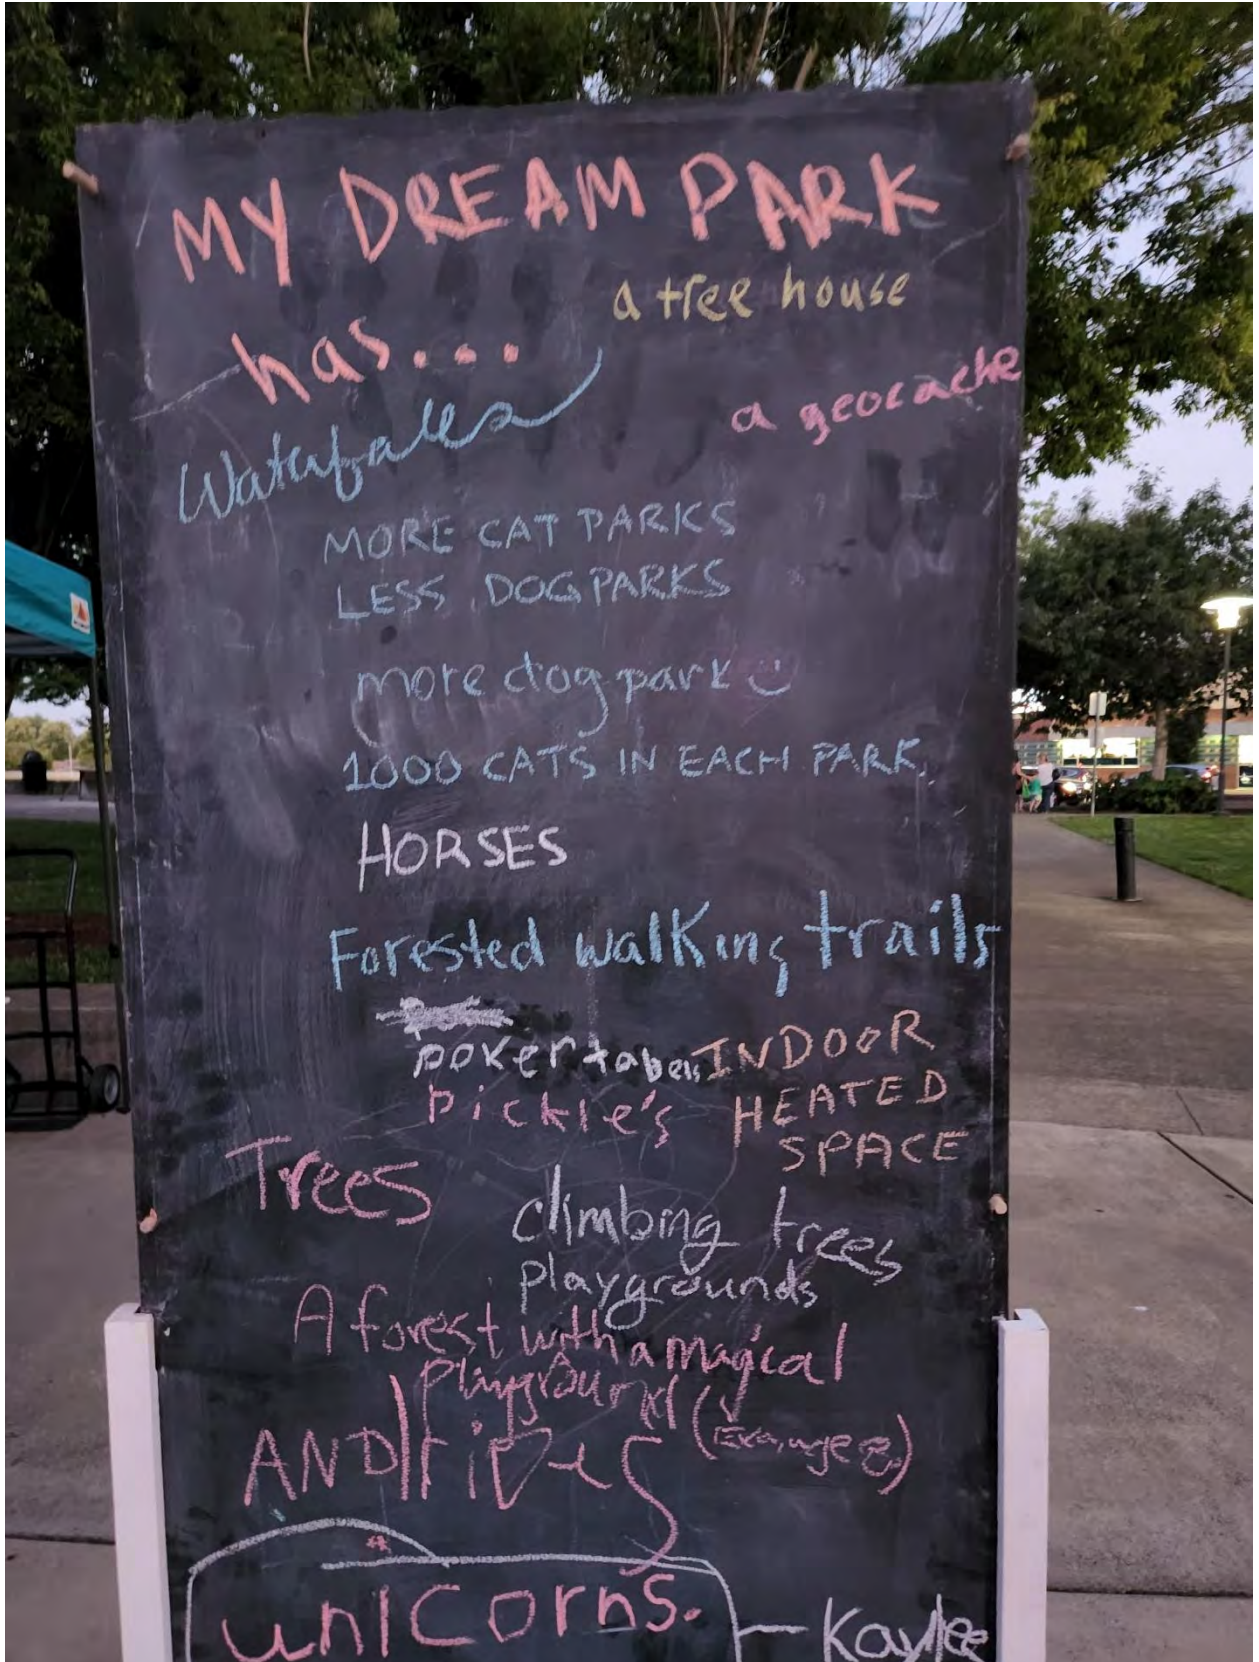 MY DREAM PARK
has...
a tree house
a geocache
Waterfalls
MORE CAT PARKS
LESS DOG PARKS
more dog park
1000 CATS IN EACH PARK.
HORSES
Forested walking trails
poker tabels
INDOOR
HEATED
SPACE
pickle's
Trees
climbing trees
playgrounds
A forest with a magical
playground
AND
unicorns.
- Kaylee